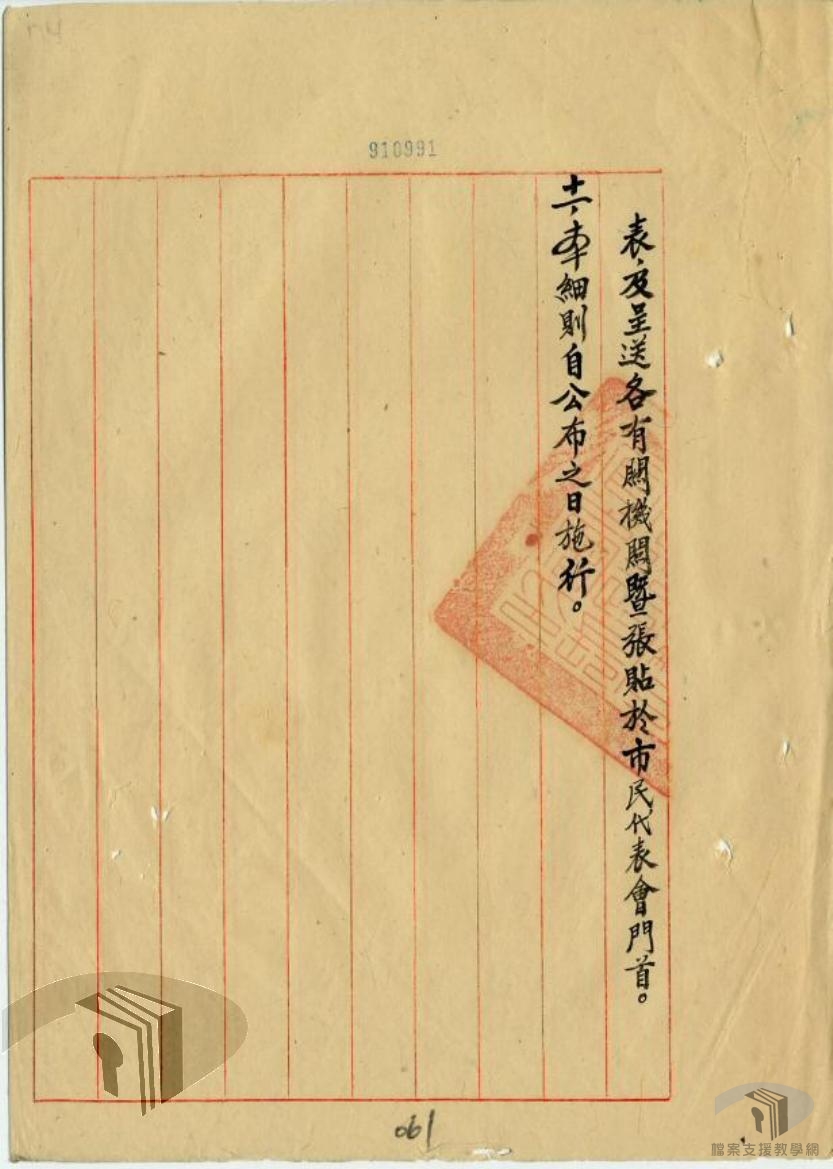 910991
表、及呈送各有關機關暨張貼於市民代表會門首。
十一、本細則自公布之日施行。
061
檔案支援教學網